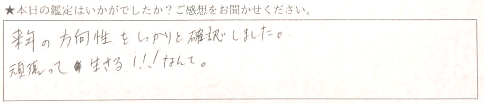 ★本日の鑑定はいかがでしたか？ご感想をお聞かせください。
来年の方向性をしっかりと確認しました。
頑張って生きる!!!なんて。